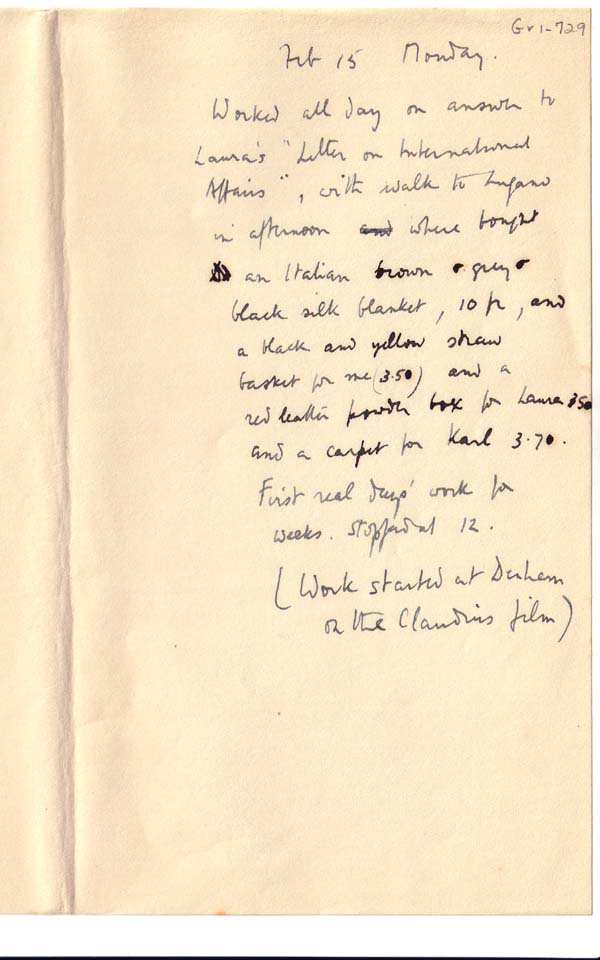 Gr1-729
Feb 15 Monday.
Worked all day on answer to
Laura's "Letter on International
Affairs", with walk to Lugano
in afternoon and where bought
an Italian brown & grey &
black silk blanket, 10 fr, and
a black and yellow straw
basket for me (3.50) and a
red leather powder box for Laura 3.50
and a carpet for Karl 3.70.
First real days' work for
weeks. Stopped at 12.
(Work started at Denham
on the Claudius film)